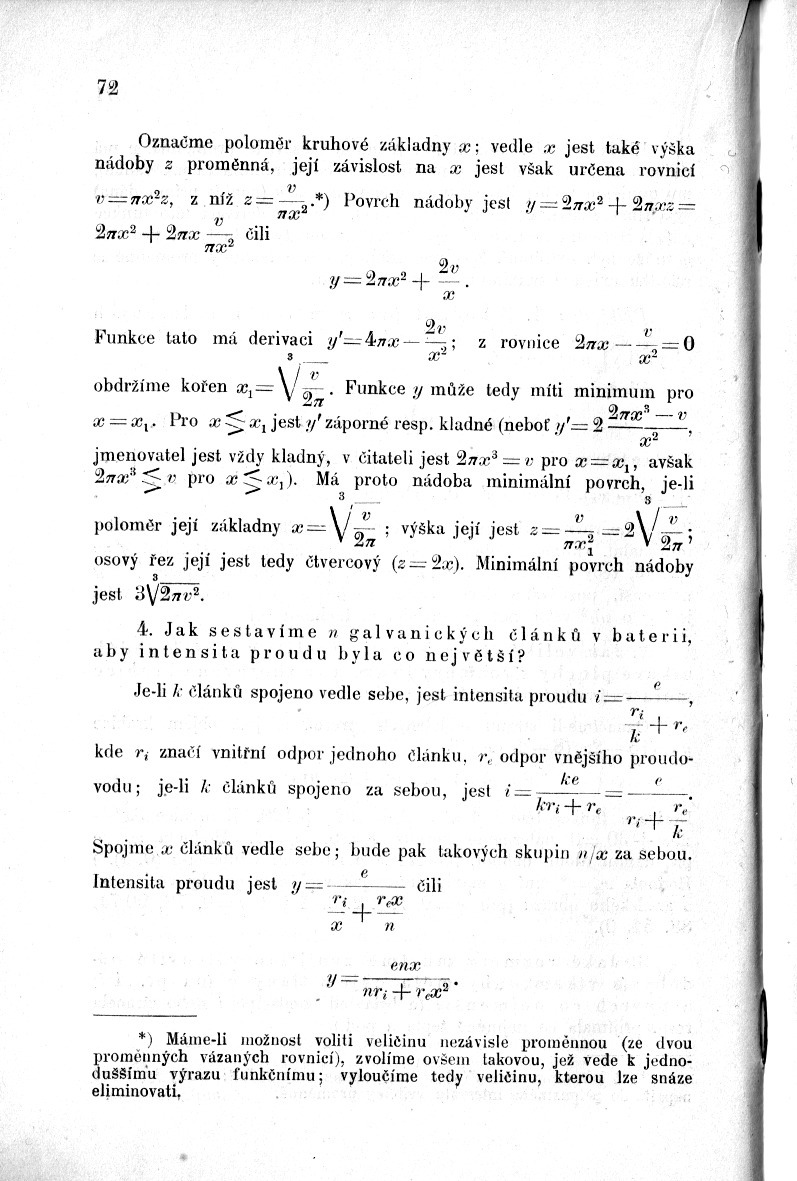 72
Označme poloměr kruhové základny x; vedle x jest také výška
nádoby z proměnná, její závislost na x jest však určena rovnicí
v = πx²z, z níž z = v/πx².*) Povrch nádoby jest y = 2πx² + 2πxz =
2πx² + 2πx v/πx² čili
y = 2πx² + 2v/x.
Funkce tato má derivaci y′ = 4πx — 2v/x²; z rovnice 2πx — v/x² = 0
obdržíme kořen x₁ = ∛(v/2π). Funkce y může tedy míti minimum pro
x = x₁. Pro x ≶ x₁ jest y′ záporné resp. kladné (neboť y′ = 2 (2πx³ — v)/x²,
jmenovatel jest vždy kladný, v čitateli jest 2πx³ = v pro x = x₁, avšak
2πx³ ≶ v pro x ≶ x₁). Má proto nádoba minimální povrch, je-li
poloměr její základny x = ∛(v/2π) ; výška její jest z = v/πx₁² = 2∛(v/2π);
osový řez její jest tedy čtvercový (z = 2x). Minimální povrch nádoby
jest 3∛(2πv²).
4. Jak sestavíme n galvanických článků v baterii,
aby intensita proudu byla co největší?
Je-li k článků spojeno vedle sebe, jest intensita proudu i = e/(rᵢ/k + rₑ),
kde rᵢ značí vnitřní odpor jednoho článku, rₑ odpor vnějšího proudo-
vodu; je-li k článků spojeno za sebou, jest i = ke/(krᵢ + rₑ) = e/(rᵢ + rₑ/k).
Spojme x článků vedle sebe; bude pak takových skupin n/x za sebou.
Intensita proudu jest y = e/(rᵢ/x + rₑx/n) čili
y = enx/(nrᵢ + rₑx²).
*) Máme-li možnost voliti veličinu nezávisle proměnnou (ze dvou
proměnných vázaných rovnicí), zvolíme ovšem takovou, jež vede k jedno-
duššímu výrazu funkčnímu; vyloučíme tedy veličinu, kterou lze snáze
eliminovati.